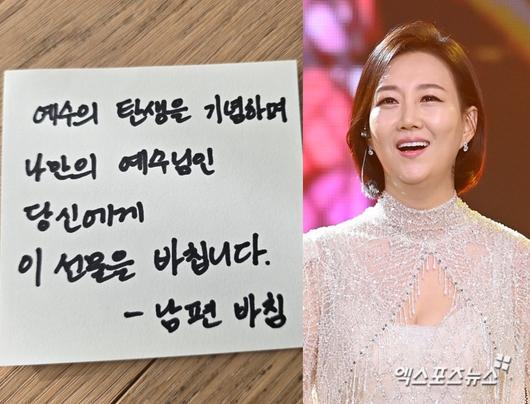 예수의 탄생을 기념하며
나만의 예수님인
당신에게
이 선물을 바칩니다.
- 남편 바침
엑스포츠뉴스